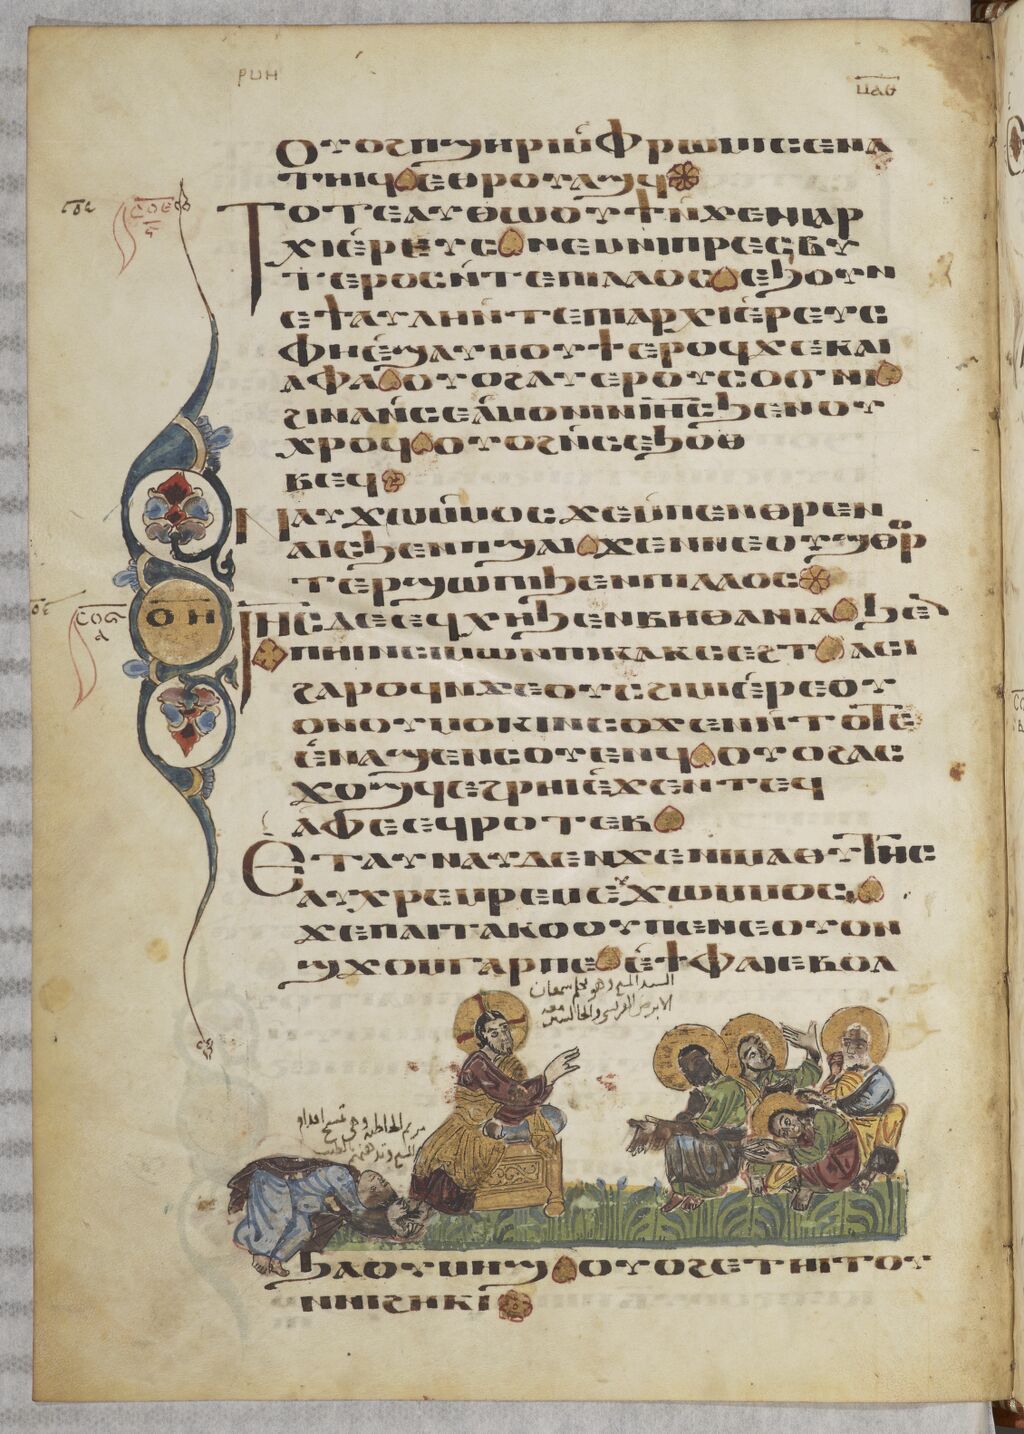 ⲣⲛⲏ
ⲡⲁⲑ
ⲟⲩⲟϩ ⲡϣⲏⲣⲓ ⲙ̀ⲫⲣⲱⲙⲓ ⲥⲉⲛⲁ
ⲧⲏⲓϥ ⲉⲑⲣⲟⲩⲁϣϥ
ⲧⲟⲧⲉ ⲁⲩⲑⲱⲟⲩϯ ⲛ̀ϫⲉ ⲛⲓⲁⲣ
ⲭⲓⲉ̀ⲣⲉⲩⲥ ⲛⲉⲙ ⲛⲓⲡⲣⲉⲥⲃⲩ
ⲧⲉⲣⲟⲥ ⲛ̀ⲧⲉ ⲡⲓⲗⲁⲟⲥ ⲉϧⲟⲩⲛ
ⲉϯⲁⲩⲗⲏ ⲛ̀ⲧⲉ ⲡⲓⲁⲣⲭⲓⲉ̀ⲣⲉⲩⲥ
ⲫⲏ ⲉ̀ϣⲁⲩⲙⲟⲩϯ ⲉⲣⲟϥ ϫⲉ ⲕⲁⲓ
ⲁⲫⲁ ⲟⲩⲟϩ ⲁⲩⲉⲣⲟⲩⲥⲟϭⲛⲓ
ϩⲓⲛⲁ ⲛ̀ⲥⲉⲁ̀ⲙⲟⲛⲓ ⲛ̀ⲓⲏ̅ⲥ̅ ϧⲉⲛ ⲟⲩ
ⲭⲣⲟϥ ⲟⲩⲟϩ ⲛ̀ⲥⲉϧⲟⲑ
ⲃⲉϥ
ⲛⲁⲩϫⲱ ⲙ̀ⲙⲟⲥ ϫⲉ ⲙ̀ⲡⲉⲛⲑⲣⲉⲛ
ⲁⲓⲥ ϧⲉⲛ ⲡϣⲁⲓ ϫⲉ ⲛⲛⲉ ⲟⲩϣⲑⲟⲣ
ⲧⲉⲣ ϣⲱⲡⲓ ϧⲉⲛ ⲡⲓⲗⲁⲟⲥ
ⲥⲟⲉ
ⲟⲏ
ⲥⲟⲋ
ⲁ
ⲓⲏ̅ⲥ̅ ⲇⲉ ⲉϥⲭⲏ ϧⲉⲛ ⲃⲏⲑⲁⲛⲓⲁ ϧⲉⲛ
ⲡⲏⲓ ⲛ̀ⲥⲓⲙⲱⲛ ⲡⲓⲕⲁⲕⲥⲉϩⲧ ⲁⲥⲓ
ϩⲁⲣⲟϥ ⲛ̀ϫⲉ ⲟⲩⲥϩⲓⲙⲓ ⲉ̀ⲣⲉ ⲟⲩ
ⲟⲛ ⲟⲩⲙⲟⲕⲓ ⲛ̀ⲥⲟϫⲉⲛ ⲛ̀ⲧⲟⲧⲥ
ⲉ̀ⲛⲁϣⲉⲛⲥⲟⲩⲉⲛϥ ⲟⲩⲟϩ ⲁⲥ
ϫⲟϣϥ ⲉϩⲣⲏⲓ ⲉ̀ϫⲉⲛ ⲧⲉϥ
ⲁⲫⲉ ⲉϥⲣⲟⲧⲉⲃ
ⲉ̀ⲧⲁⲩⲛⲁⲩ ⲇⲉ ⲛϫⲉ ⲛⲓⲙⲁⲑⲏⲧⲏⲥ
ⲁⲩⲭⲣⲉⲙⲣⲉⲙ ⲉⲩϫⲱ ⲙ̀ⲙⲟⲥ
ϫⲉ ⲡⲁⲓⲧⲁⲕⲟ ⲟⲩ ⲡⲉ ⲛⲉ ⲟⲩⲟⲛ
ϣϫⲟⲙ ⲅⲁⲣ ⲡⲉ ⲉ̀ϯ ⲫⲁⲓ ⲉⲃⲟⲗ
السيد المسيح وهو يكلم سمعان
الابرص الفريسي والجالسين معه
مريم الخاطئة وهي تمسح اقدام
المسيح وتدهنهم بالطيب
ϧⲁ ⲟⲩⲙⲏϣ ⲟⲩⲟϩ ⲉⲧⲏⲓⲧⲟⲩ
ⲛⲛⲓϩⲏⲕⲓ